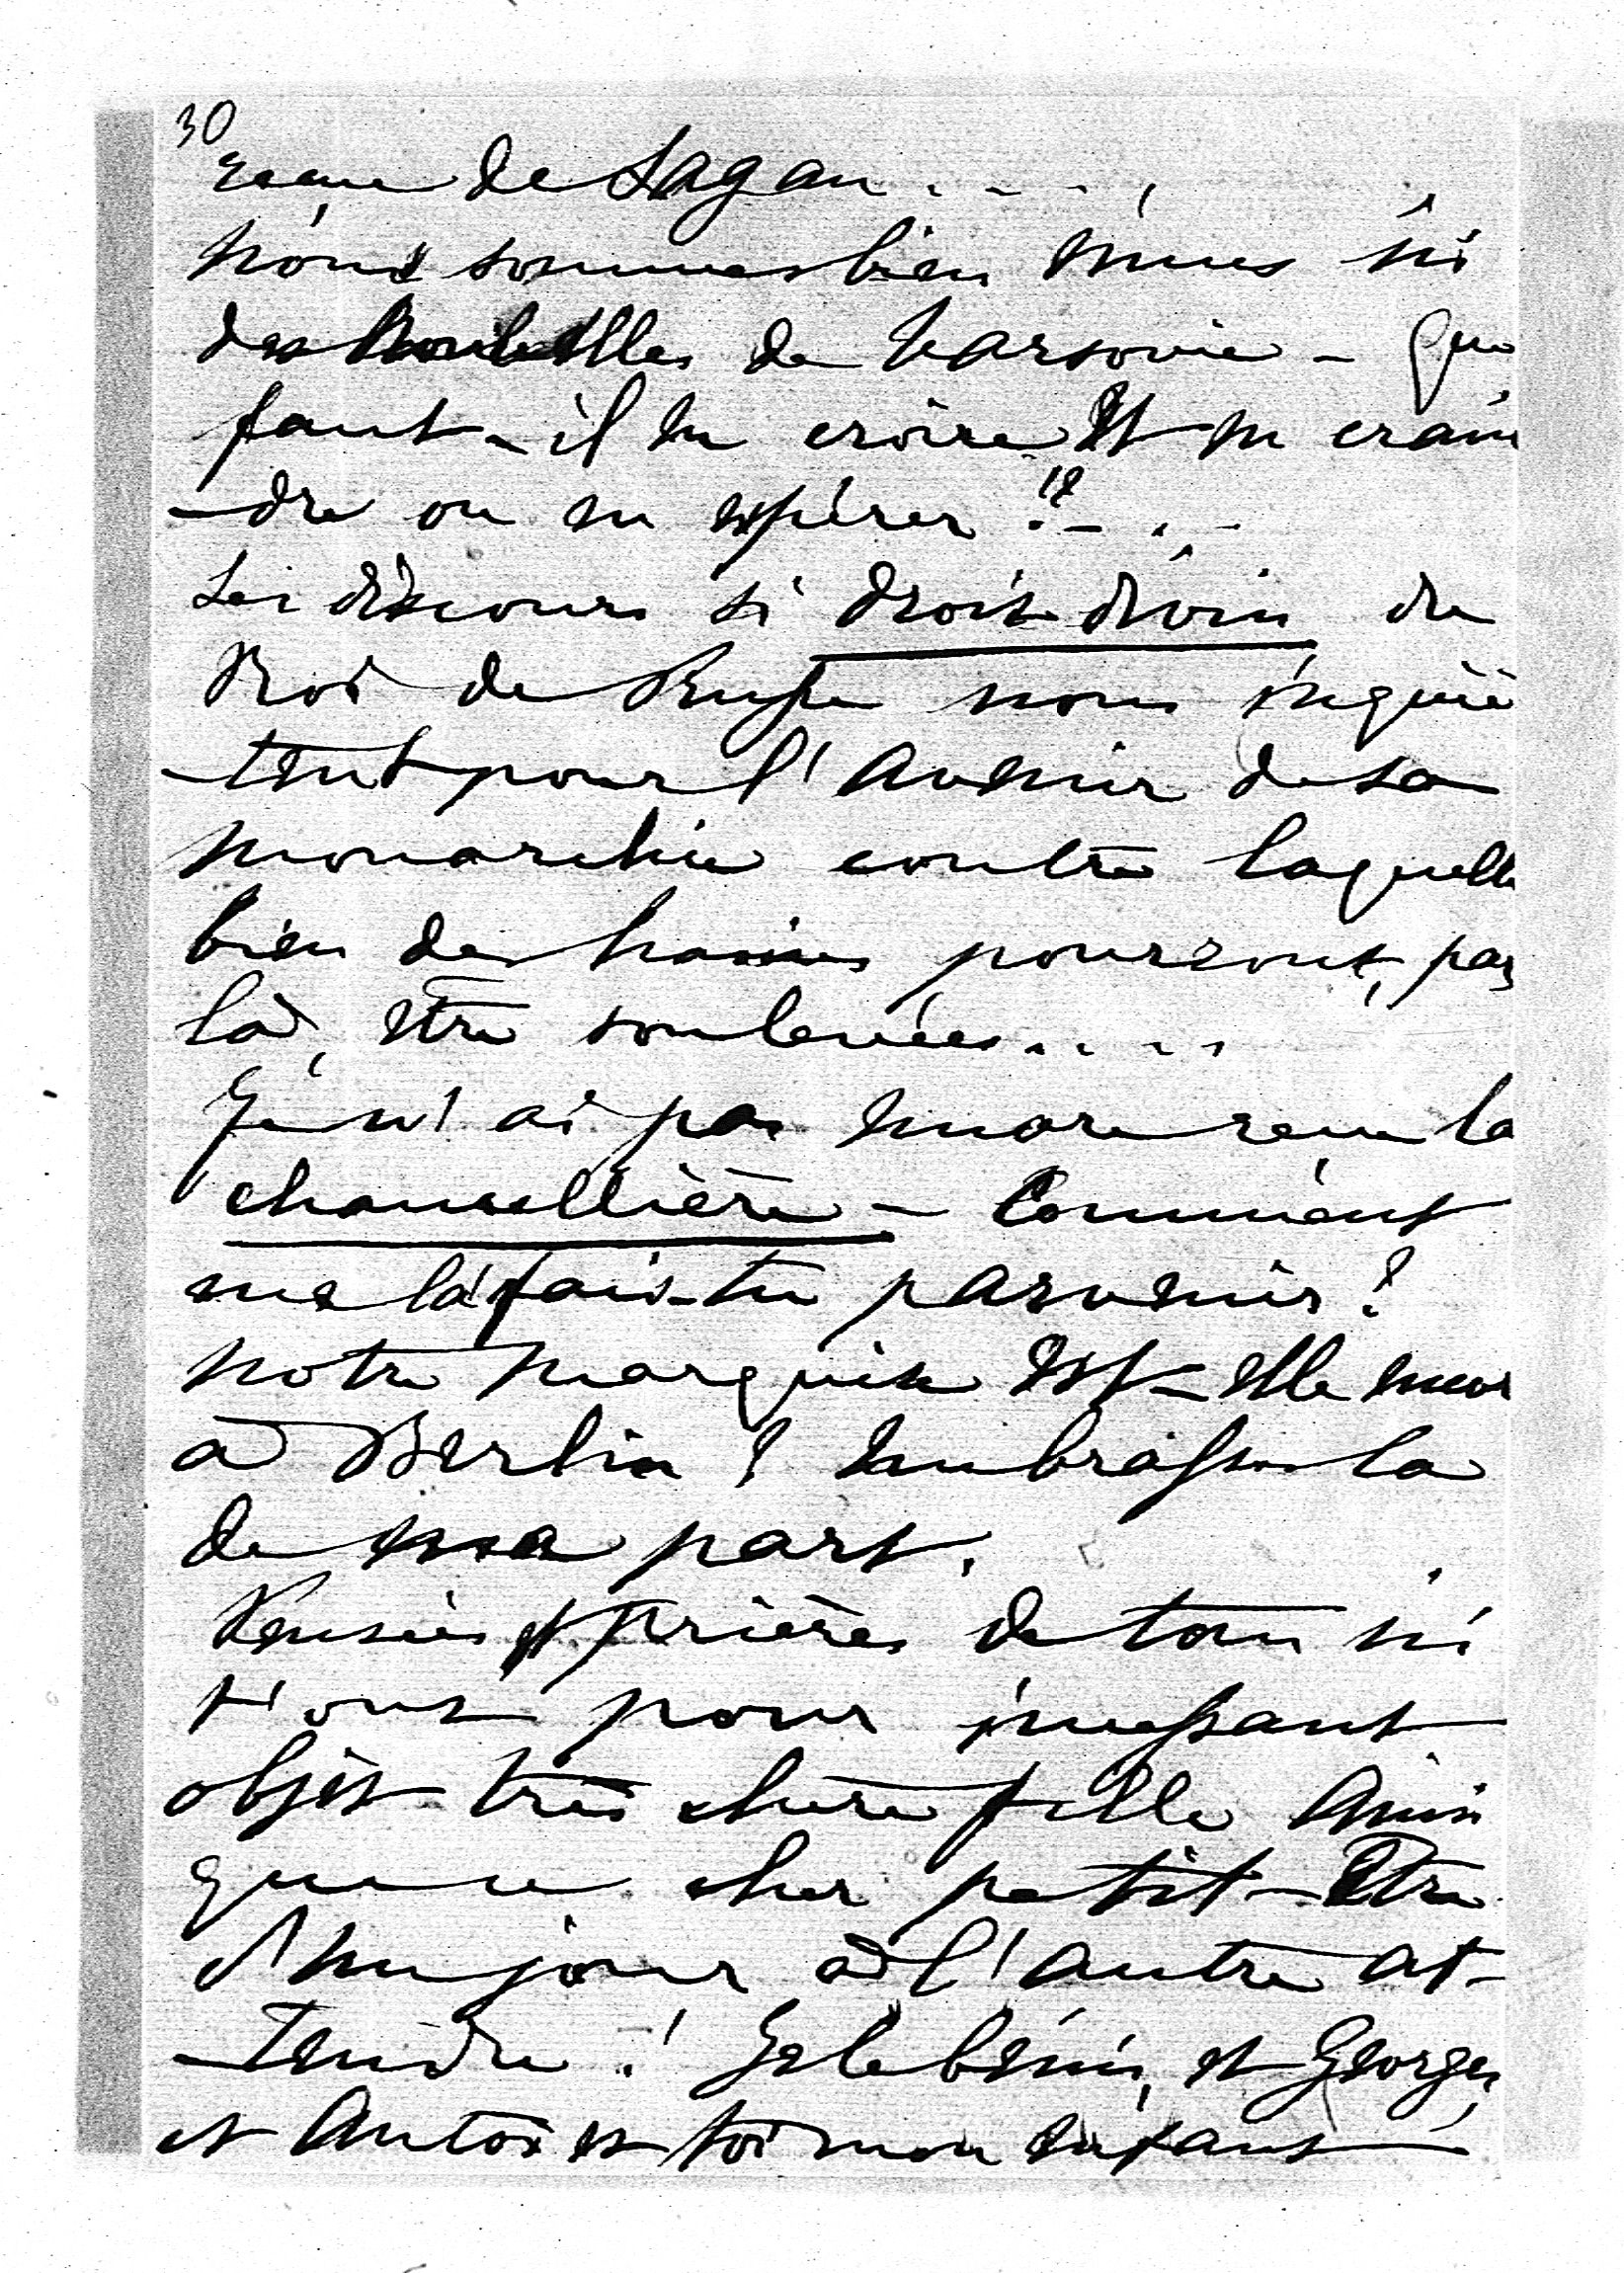 30
de Sagan . . . .
Nous sommes bien émues ici
des Nouvelles de Varsovie - Que
faut-il en croire et en crain
-dre ou en espérer !? - . -
Les discours si droit divin du
Roi de Prusse nous inquiè
-tent pour l'avenir de sa
monarchie contre laquelle
bien des haines pourront, par
là, être soulevées . . . .
Je n'ai pas encore reçu la
chancellière - Comment
me la fais-tu parvenir ?
Notre Marquise est-elle encor
à Berlin ? Embrasse la
de ma part.
Pensées et prières de tous ici
t'ont pour incessant
objèt très chère fille Ainsi
que ce cher petit-Être
d'un jour à l'autre at-
-tendu ! Je le bénis, et Georges
et Antoi et toi mon enfant